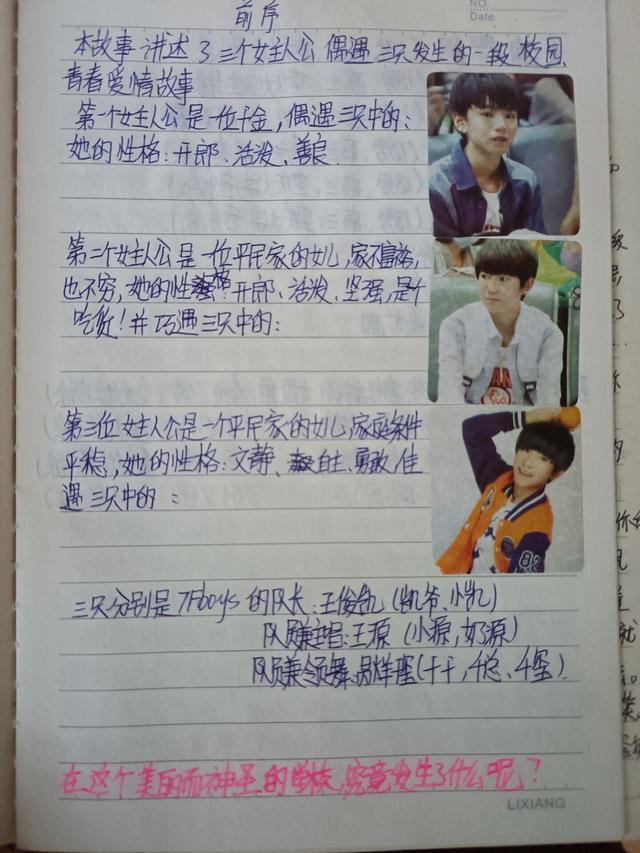 前序
NO.
Date
本故事讲述了三个女主人公偶遇三只发生的一段校园
青春爱情故事
第一个女主人公是一位千金,偶遇三只中的:
她的性格:开郎、活泼、善良
第二个女主人公是一位平民家的女儿,家不富裕,
也不穷,她的性格:开郎、活泼、坚强,是个
吃货!并巧遇三只中的:
第三位女主人公是一个平民家的女儿,家庭条件
平稳,她的性格:文静、自主、勇敢,佳
遇三只中的:
三只分别是TFboys的队长:王俊凯(凯爷、小凯)
队员兼主唱:王源(小源,奶源)
队员兼领舞:易烊千玺(千千、千总、千玺)
在这个美丽而神圣的学校,究竟发生了什么呢?
LIXIANG